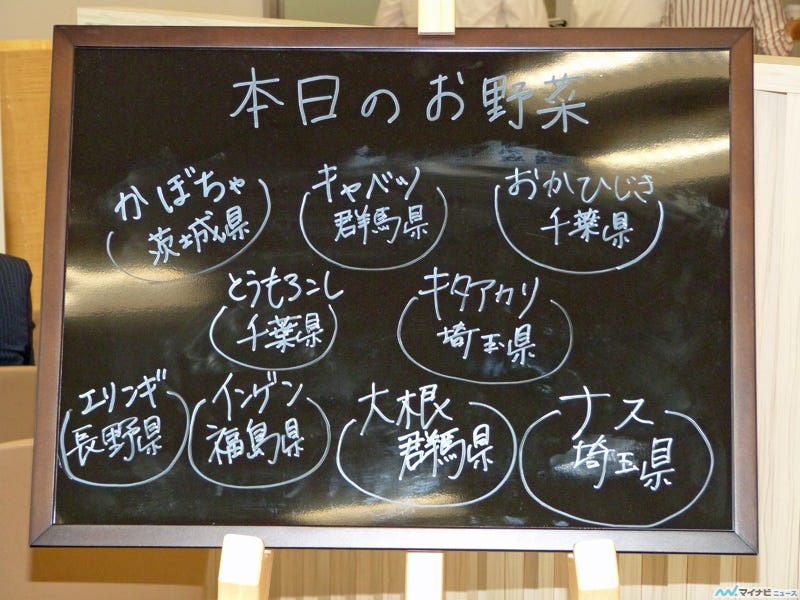 本日のお野菜
かぼちゃ
茨城県
キャベツ
群馬県
おかひじき
千葉県
とうもろこし
千葉県
キタアカリ
埼玉県
エリンギ
長野県
インゲン
福島県
大根
群馬県
ナス
埼玉県
マイナビニュース